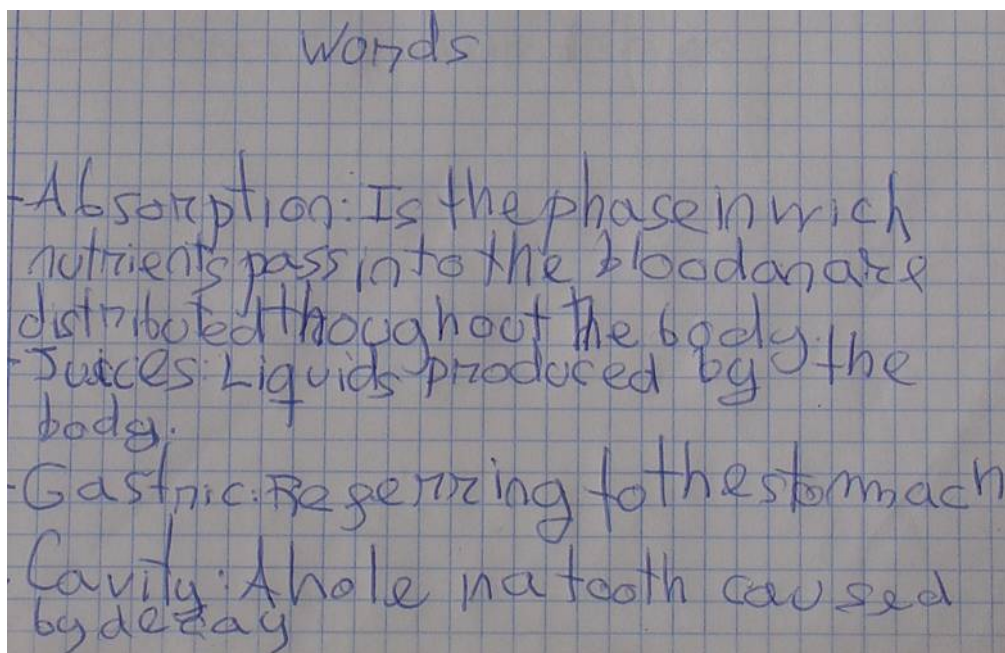 Words
-Absorption: Is the phase in wich
nutrients pass into the blood an are
distributed thoughout the body.
-Juices: Liquids produced by the
body.
-Gastric: Referring to the stommach
-Cavity: A hole in a tooth caused
by decay